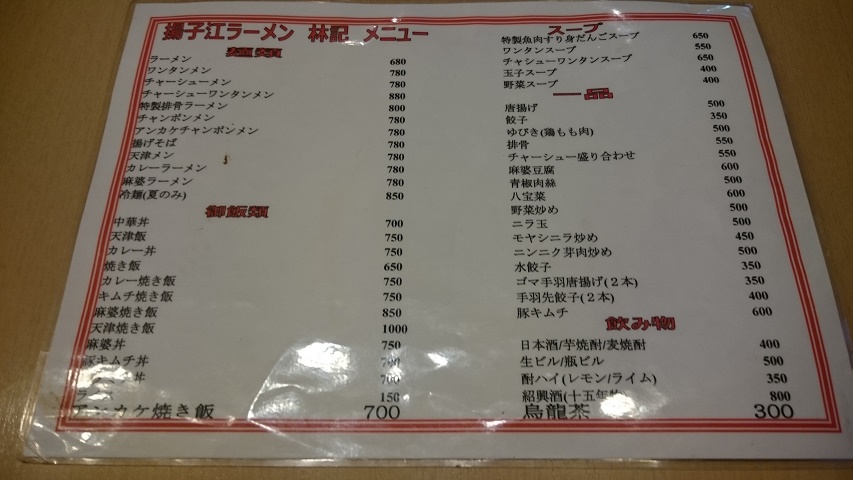 揚子江ラーメン 林記 メニュー
麺類
ラーメン 680
ワンタンメン 780
チャーシューメン 780
チャーシューワンタンメン 880
特製排骨ラーメン 800
チャンポンメン 780
アンカケチャンポンメン 780
揚げそば 780
天津メン 780
カレーラーメン 780
麻婆ラーメン 780
冷麺(夏のみ) 850
御飯類
中華丼 700
天津飯 750
カレー丼 750
焼き飯 650
カレー焼き飯 750
キムチ焼き飯 750
麻婆焼き飯 850
天津焼き飯 1000
麻婆丼 750
豚キムチ丼 700
丼 700
150
アンカケ焼き飯 700
スープ
特製魚肉すり身だんごスープ 650
ワンタンスープ 550
チャシューワンタンスープ 650
玉子スープ 400
野菜スープ 400
一品
唐揚げ 500
餃子 350
ゆびき(鶏もも肉) 500
排骨 550
チャーシュー盛り合わせ 550
麻婆豆腐 600
青椒肉絲 500
八宝菜 600
野菜炒め 500
ニラ玉 500
モヤシニラ炒め 450
ニンニク芽肉炒め 500
水餃子 350
ゴマ手羽唐揚げ(２本) 350
手羽先餃子(２本) 400
豚キムチ 600
飲み物
日本酒/芋焼酎/麦焼酎 400
生ビル/瓶ビル 500
酎ハイ(レモン/ライム) 350
紹興酒(十五年物 800
烏龍茶 300